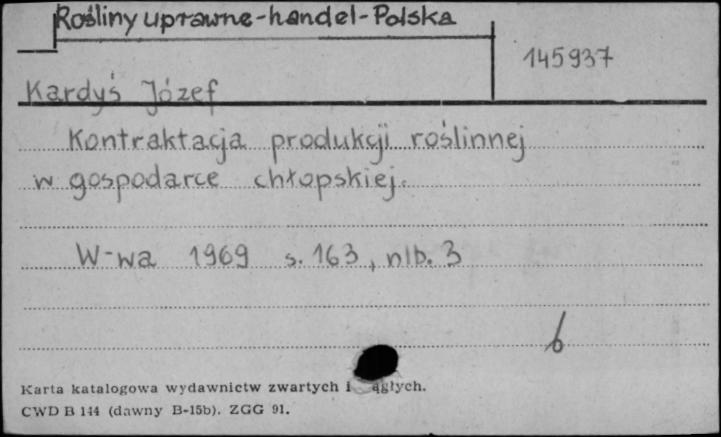 Rośliny uprawne-handel-Polska
145937
Kardyś Józef
Kontraktacja produkcji roślinnej
w gospodarce chłopskiej.
W-wa 1969 s. 163, nlb. 3
6
Karta katalogowa wydawnictw zwartych i ągłych.
CWD B 144 (dawny B-15b). ZGG 91.